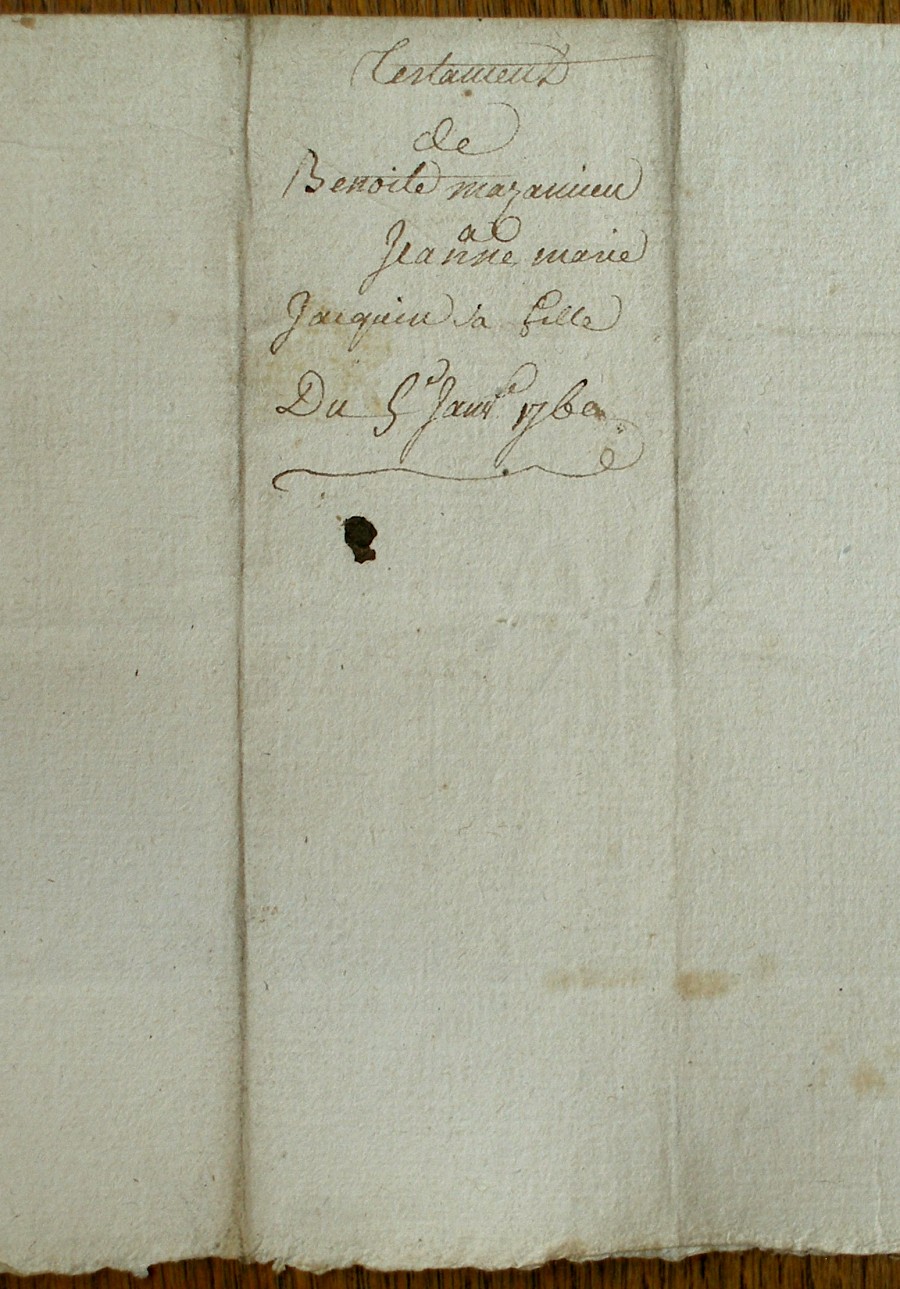 Testament
de
Benoite mazamieu
a
Jeanne marie
Jacquin sa fille
Du 5e Janvr 1760